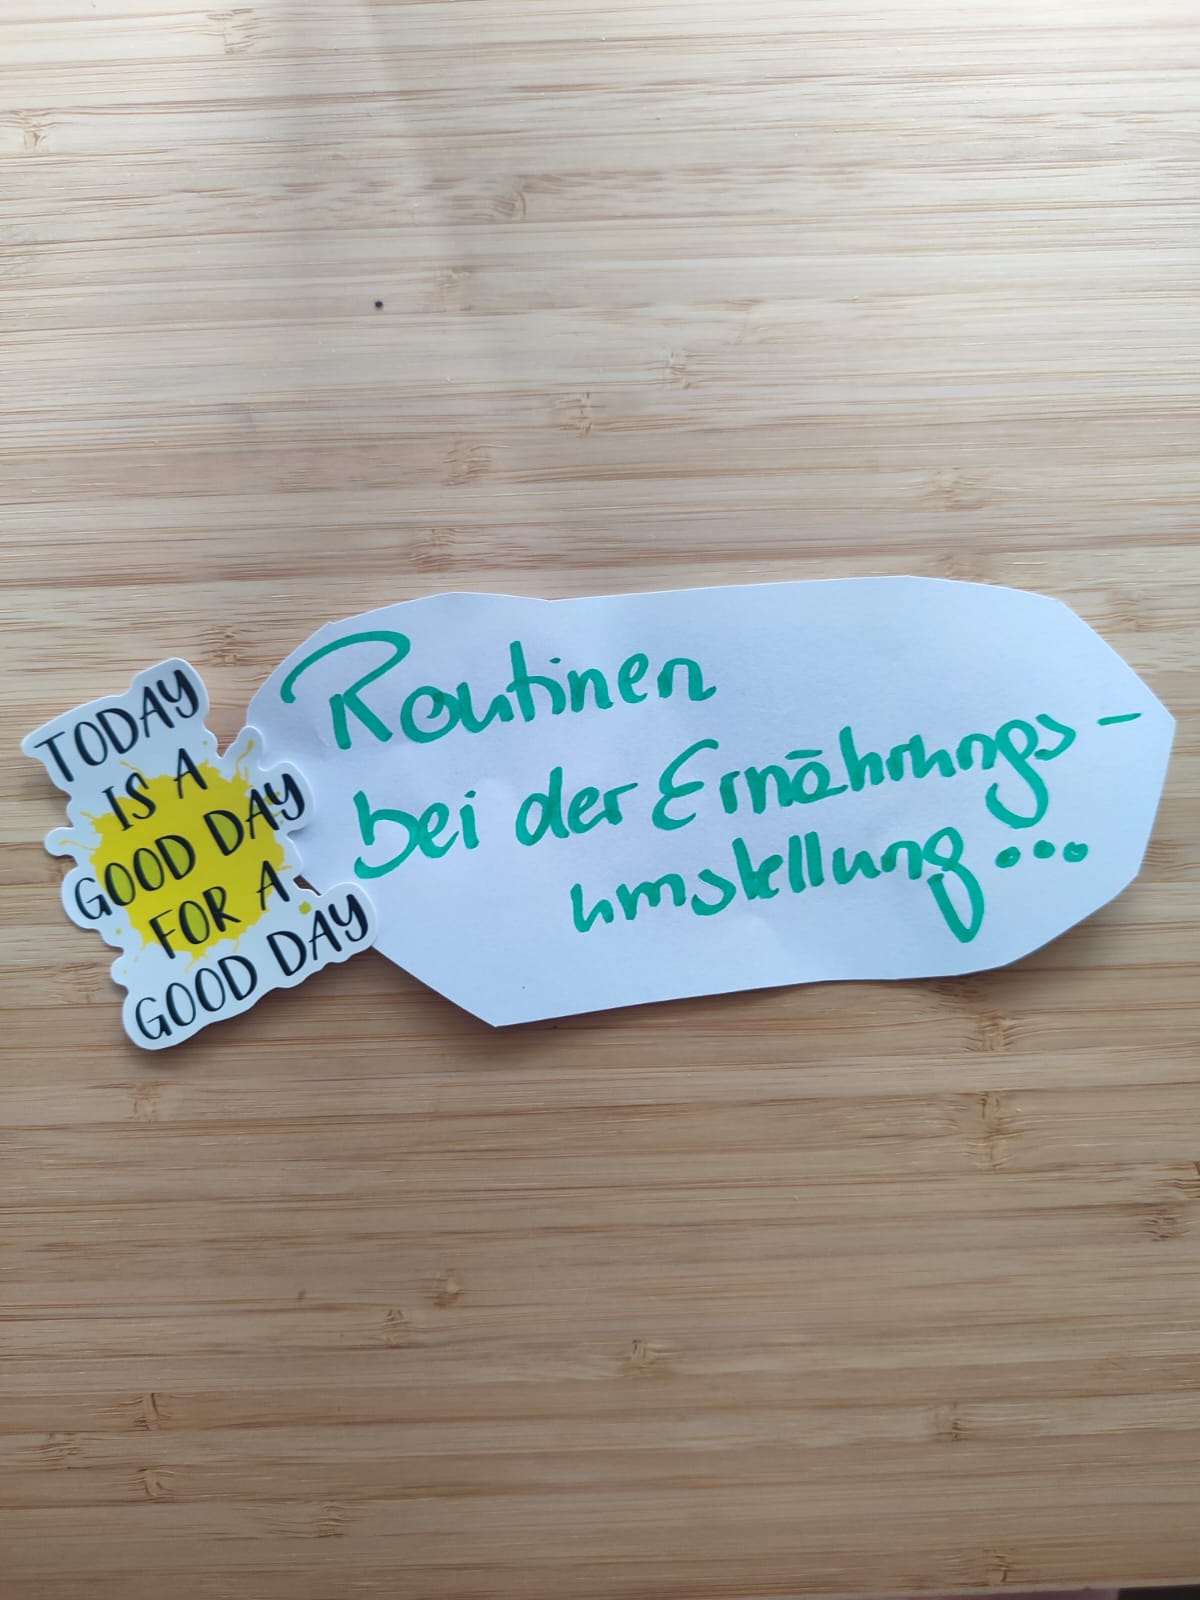 TODAY
IS A
GOOD DAY
FOR A
GOOD DAY
Routinen
bei der Ernährungs-
umstellung...